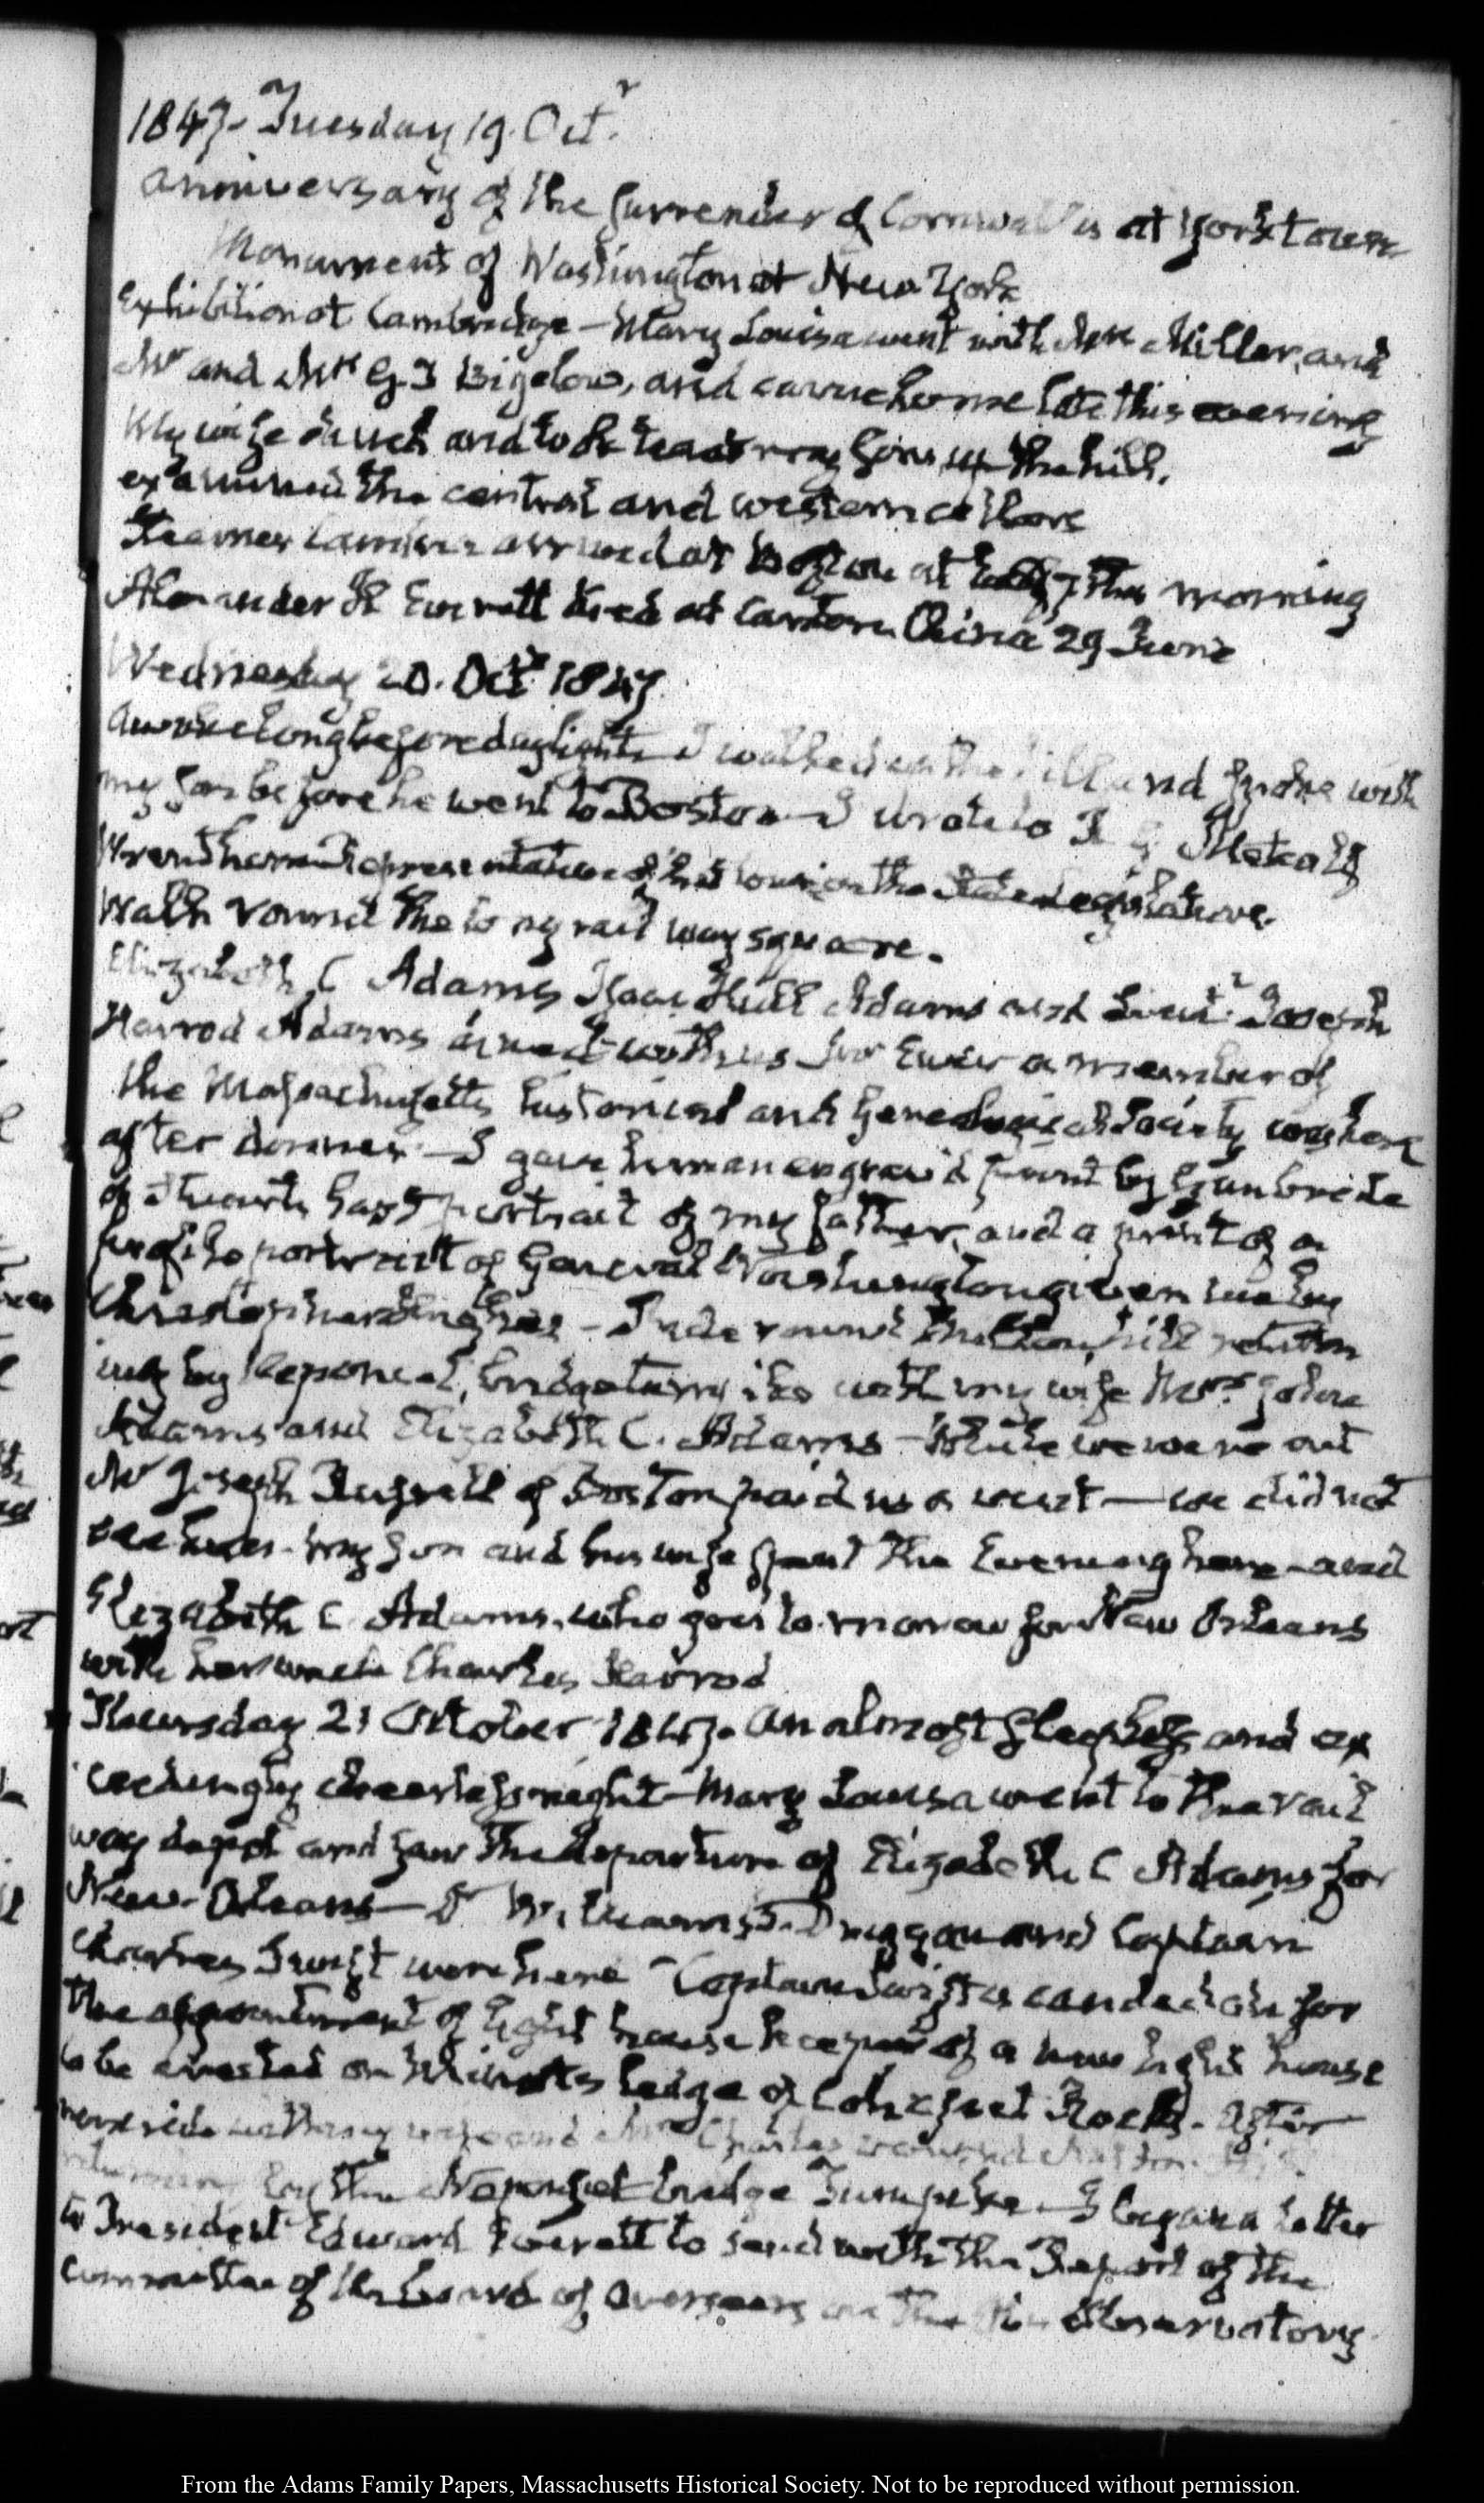 1847. Tuesday 19. Octr.
Anniversary of the surrender of Cornwallis at York town
Monument of Washington at New York
Exhibition at Cambridge — Mary Louisa went with Mrs Miller, and
Mr and Mrs G. T Bigelow, and came home late this evening
My wife and took tea at my Son's up the hill.
examined the central and western cellars
Steamer Cambria arrived at Boston at this morning
Alexander H Everett died at Canton China 29 June
Wednesday 20. Octr 1847
Awoke long before daylight I walked up the hill and spoke with
my son before he went to Boston — I wrote to Metcalf
Wrentham representative of that town in the State Legislature.
Walk round the long rail way square.
Elizabeth C Adams Isaac Hull Adams and Lieutt Joseph
Harrod Adams dined with us Mr Ewer a member of
the Massachusetts historical and Genealogical Society was here
after dinner — I gave him an engrav'd print by
of Stuarts last portrait of my father, and a print of a
profile portrait of General Washington given me by
Christopher — I rode round Milton hill return
ing by Neponset, bridge turnpike with my wife Mrs. John
Adams and Elizabeth C. Adams — While we were out
Mr Joseph of Boston paid us a visit — we did not
see him. My Son and his wife spent the Evening here — and
Elizabeth C Adams, who goes to morrow for New Orleans
with her uncle Charles Harrod
Thursday 21 October 1847. An almost sleepless and ex
ceedingly cheerless night — Mary Louisa went to the rail
way depot and saw the departure of Elizabeth C Adams for
New-Orleans — Dr W. Duggan and Captain
Charles Swift were here — Captain Swift is candidate for
the appointment of light house keeper of a new light house
to be erected on Minot's ledge of Cohasset Rocks. After
ride with my wife and Mrs Charles round Milton
returning by the Neponset bridge Turnpike — I began a letter
to President Edward Everett to send with the Report of the
committee of the board of Overseers on the Observatory
From the Adams Family Papers, Massachusetts Historical Society. Not to be reproduced without permission.